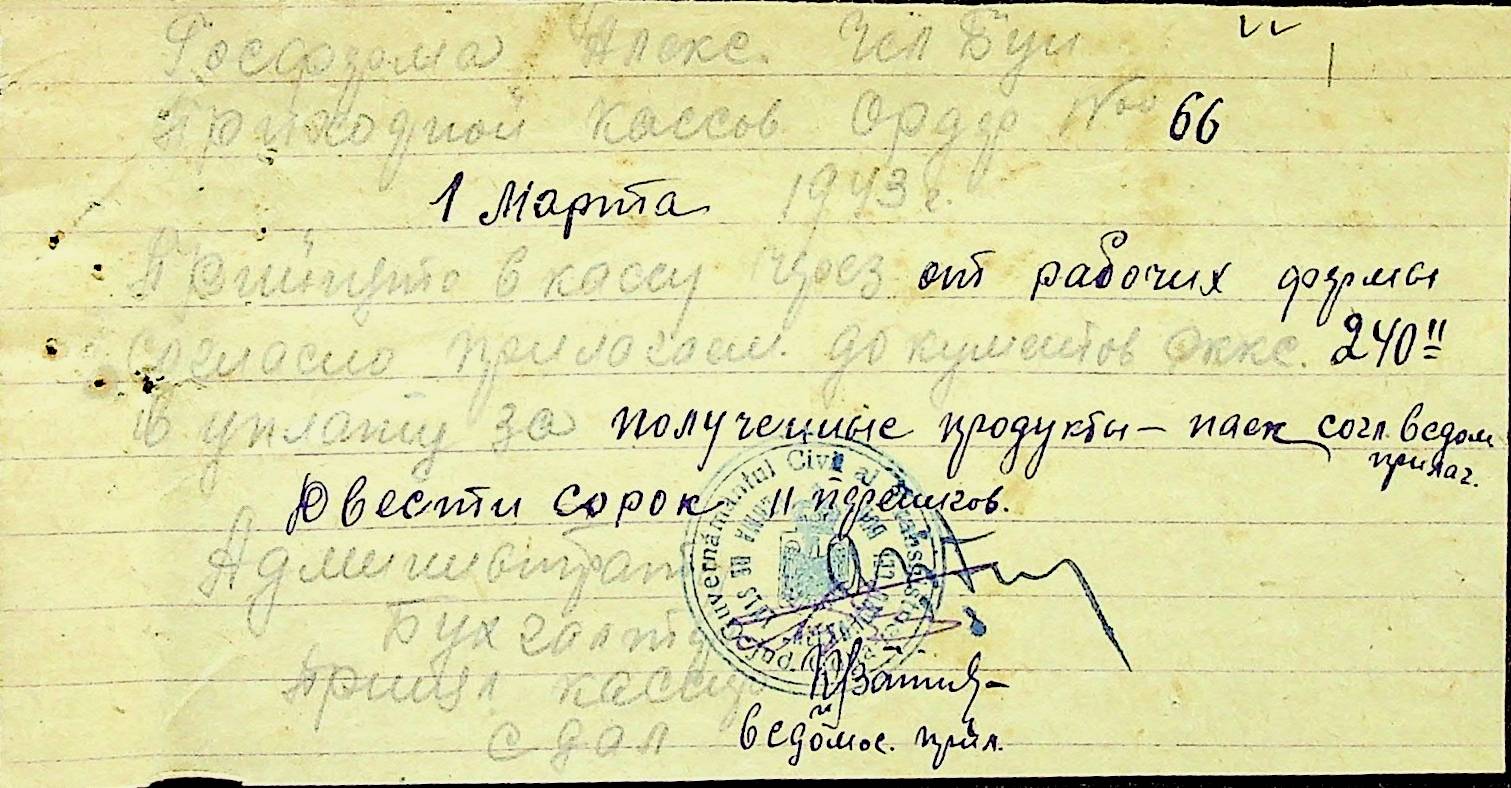 Госферма Алекс.
Приходной кассов Ордер № 66
1 Марта 1943 г.
Принято в кассу через от рабочих фермы
согласно прилагаем. документов оккс. 240 "
В уплату за полученные продукты – паек согл. ведом
прилаг.
Двести сорок " пфенигов.
Guvernământul Civil al Transnistriei
Администрат
Бухгалтер
Принял кассир
сдал ведомос. прил.